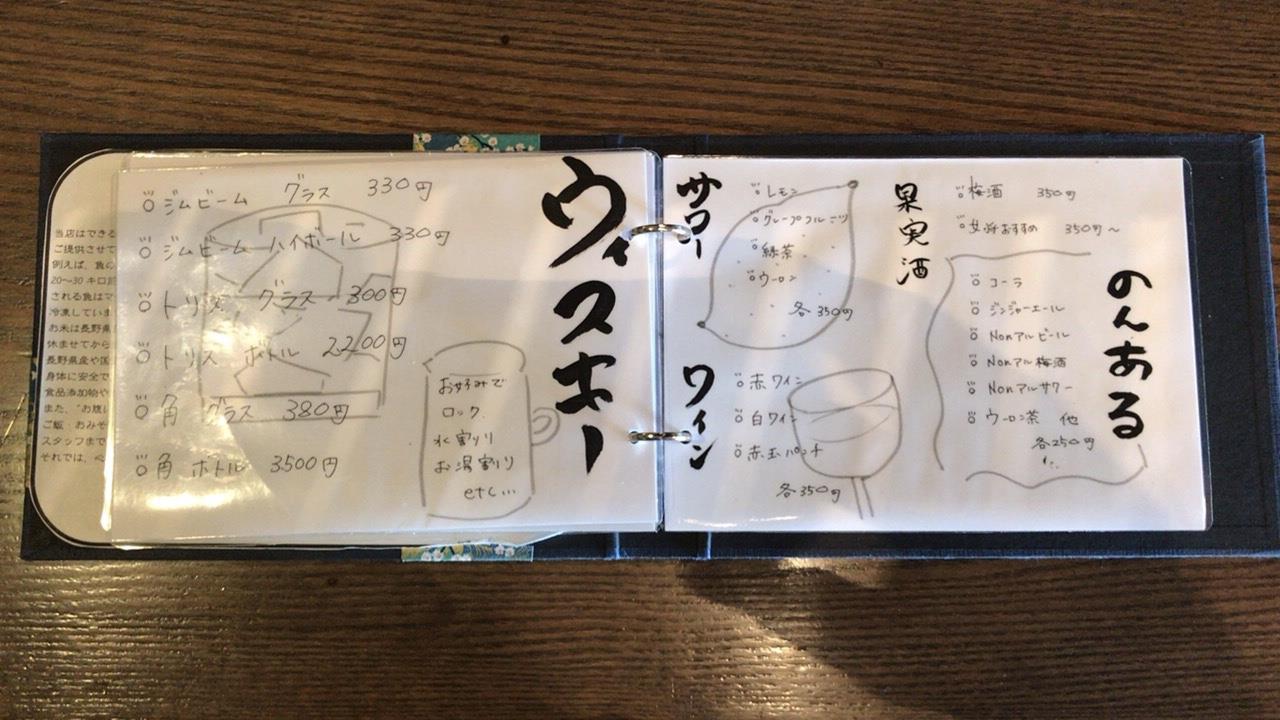 のんある
コーラ
ジンジャーエール
Nonアルビール
Nonアル梅酒
Nonアルサワー
ウーロン茶 他
各250円
果実酒
梅酒 350円
女将おすすめ 350円〜
サワー
レモン
グレープフルーツ
緑茶
ウーロン
各350円
ワイン
赤ワイン
白ワイン
赤玉パンチ
各350円
ウィスキー
ジムビーム グラス 330円
ジムビーム ハイボール 330円
トリス グラス 300円
トリス ボトル 2200円
角 グラス 380円
角 ボトル 3500円
お好みで
ロック.
水割り
お湯割り
etc...
当店はできる
ご提供させて
例えば、魚の
20〜30キロ
される魚はマ
冷凍していま
お米は長野県
休ませてから
長野県産や国
身体に安全で
食品添加物や
また、"お腹に
ご飯・おみそ
スタッフまで
それでは、